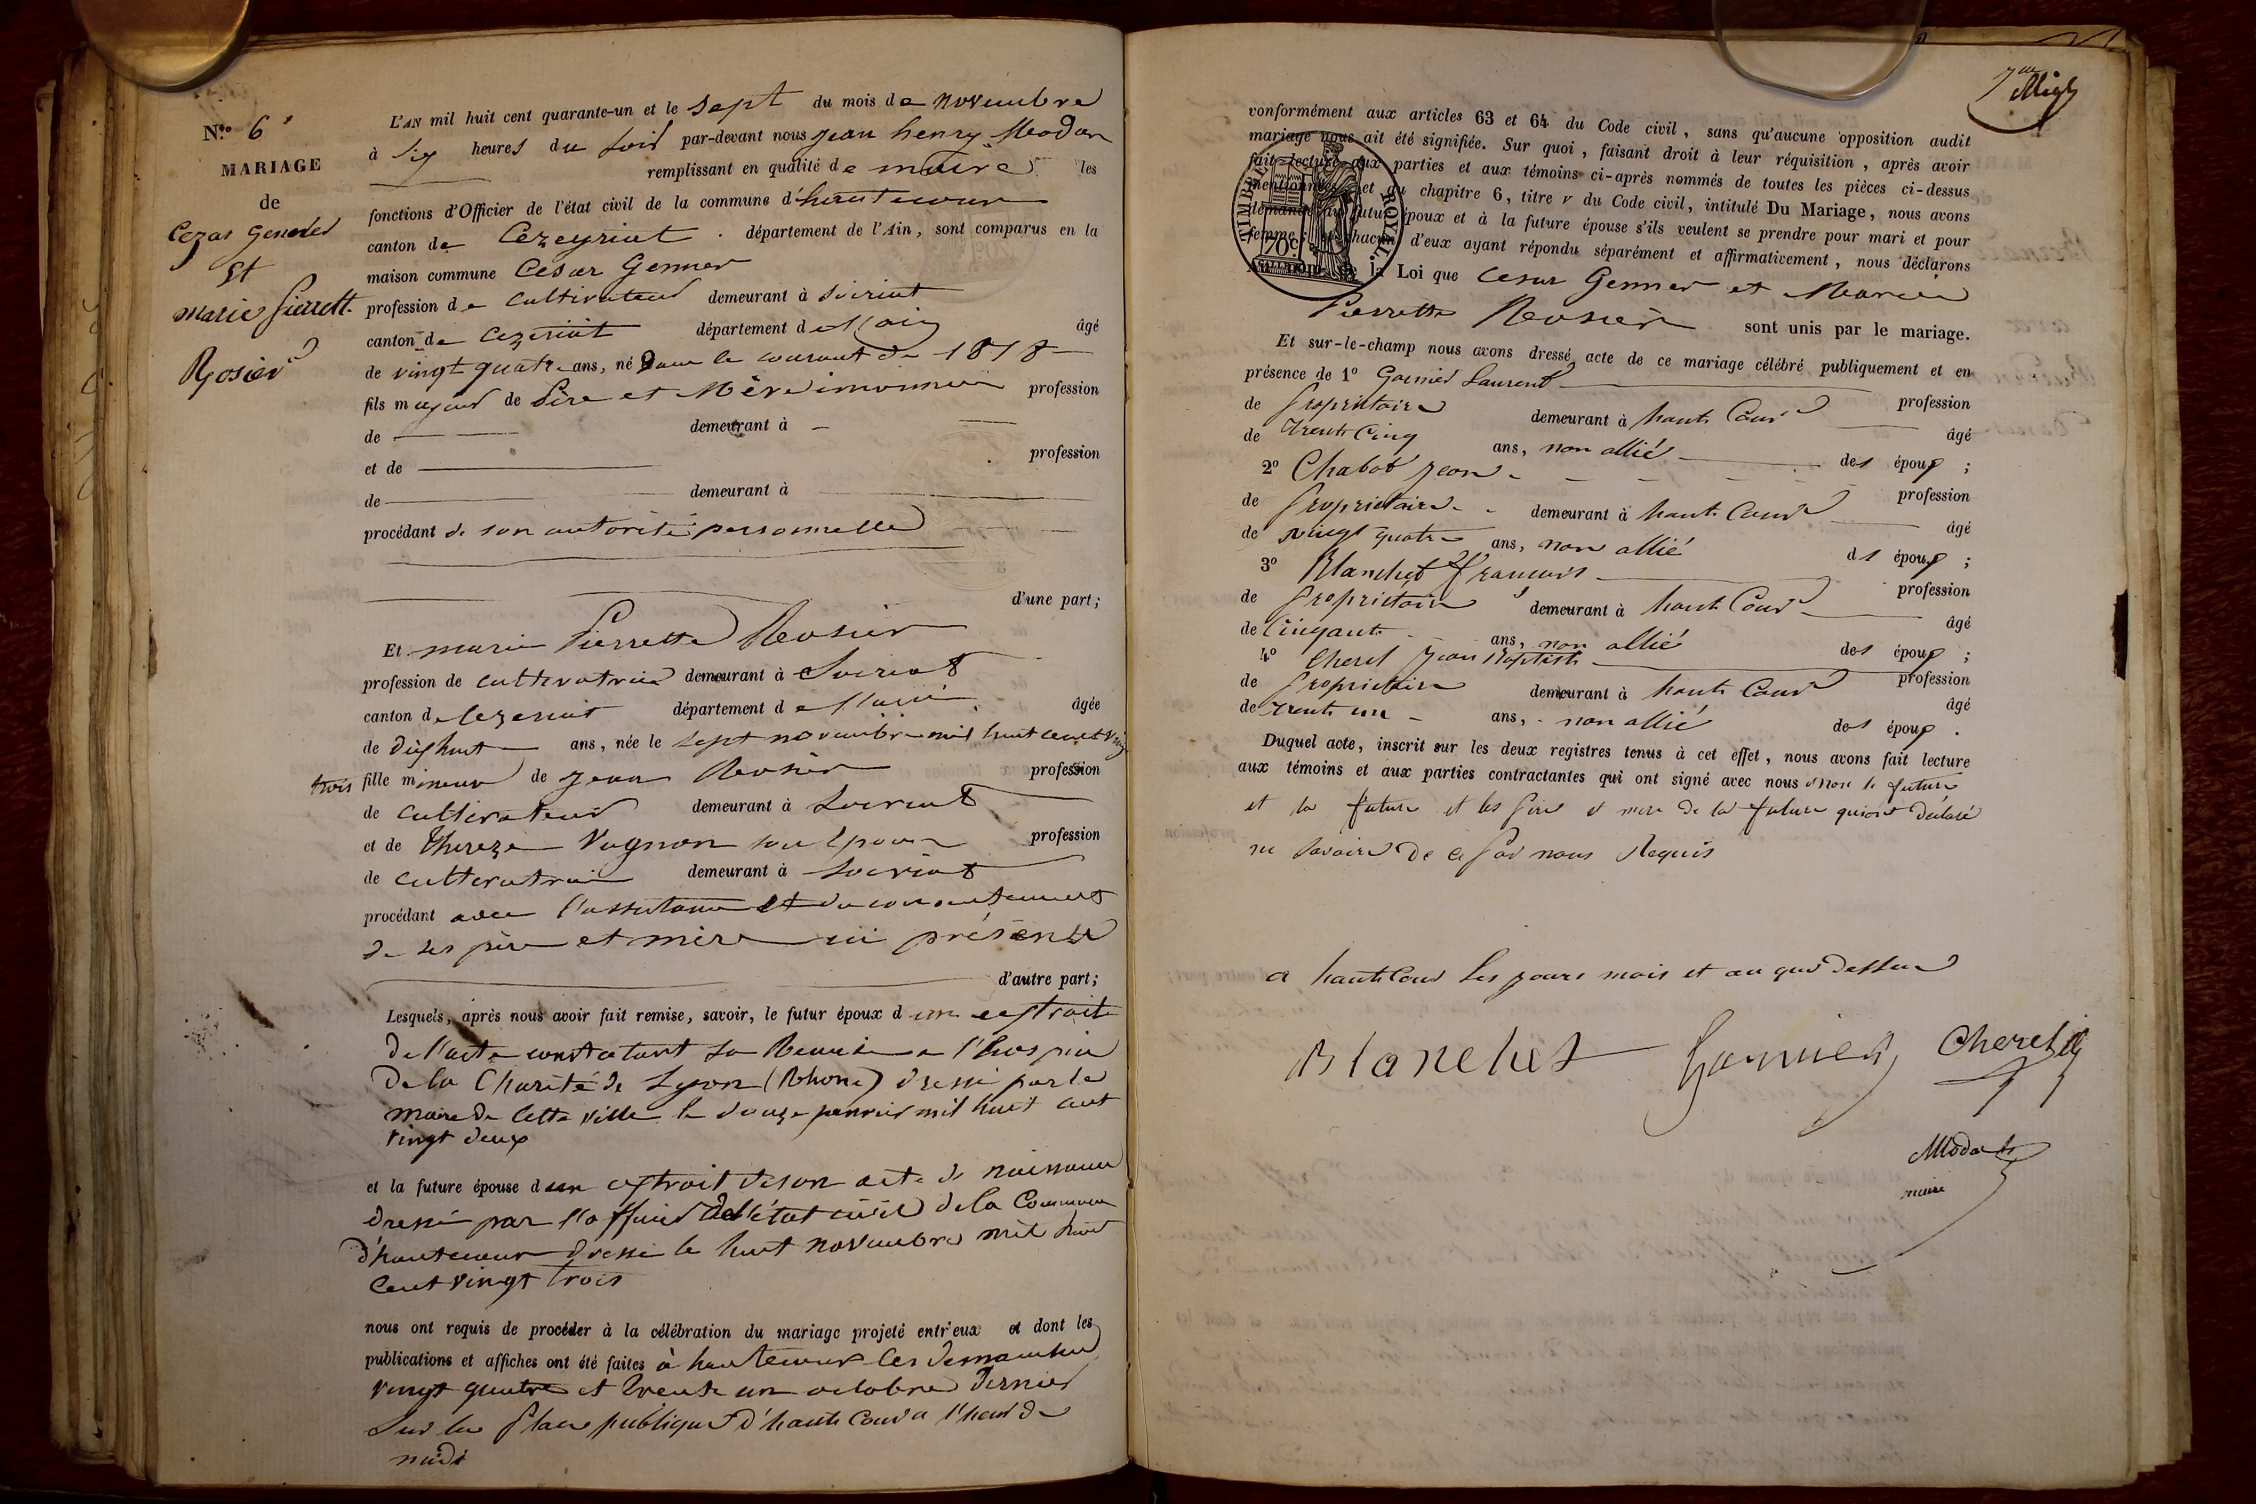 N.º 6
MARIAGE
de
Cezar Genner
Et
marie Pierrette
Rosier
L'AN mil huit cent quarante-un et le sept du mois de novembre
à six heures du soir par-devant nous jean henry Modas
remplissant en qualité de maire les
fonctions d'Officier de l'état civil de la commune d'hautecour
canton de Cezeyriat . département de l'Ain, sont comparus en la
maison commune César Genner
profession de cultivateur demeurant à Soiriat
canton de Cezeriat département de l'ain âgé
de vingt quatre ans, né dans le courant de 1818
fils majeur de Père et Mère inconnus profession
de demeurant à
et de profession
de demeurant à
procédant de son autorité personnelle
d'une part;
Et marie Pierrette Rosier
profession de cultivatrice demeurant à Soiriat
canton de Cezeriat département de l'ain âgée
de dix huit ans, née le sept novembre mil huit cent vingt
trois fille mineur de jean Rosier profession
de cultivateur demeurant à Soiriat
et de Thereze Vugnon son épouse profession
de cultivatrice demeurant à Soiriat
procédant avec l'assistance et du consentement
de ses père et mère ici présents
d'autre part;
Lesquels, après nous avoir fait remise, savoir, le futur époux d'un extrait
de l'acte constatant sa Remise a l'hospice
de la Charité de Lyon (Rhone) dressé par le
maire de cette ville le douze janvier mil huit cent
vingt deux
et la future épouse d'un extrait de son acte de naissance
dressé par l'officier de l'état civil de la Commune
d'hautecour dressé le huit novembre mil huit
cent vingt trois
nous ont requis de procéder à la célébration du mariage projeté entr'eux et dont les
publications et affiches ont été faites à hautecour les dimanches
vingt quatre et trente un octobre dernier
sur la place publique d'haute Cour a l'heure de
midi
vonformément aux articles 63 et 64 du Code civil, sans qu'aucune opposition audit
mariage nous ait été signifiée. Sur quoi, faisant droit à leur réquisition, après avoir
fait lecture aux parties et aux témoins ci-après nommés de toutes les pièces ci-dessus
mentionnées, et du chapitre 6, titre v du Code civil, intitulé Du Mariage, nous avons
demandé au futur époux et à la future épouse s'ils veulent se prendre pour mari et pour
femme; et chacun d'eux ayant répondu séparément et affirmativement, nous déclarons
Au nom de la Loi que Cesar Genner et Marie
Pierrette Rosier sont unis par le mariage.
TIMBRE ROYAL
70 c
Et sur-le-champ nous avons dressé acte de ce mariage célébré publiquement et en
présence de 1º Garnier Laurent profession
de Propriétaire demeurant à haute Cour âgé
de trente cinq ans, non allié des époux ;
2º Chabot jean profession
de Propriétaire demeurant à haute Cour âgé
de vingt quatre ans, non allié ds époux ;
3º Blanchet françois profession
de Propriétaire demeurant à haute Cour âgé
de cinqante ans, non allié des époux ;
4º Cherel jean Baptiste profession
de Propriétaire demeurant à haute Cour âgé
de trente un ans, non allié des époux .
Duquel acte, inscrit sur les deux registres tenus à cet effet, nous avons fait lecture
aux témoins et aux parties contractantes qui ont signé avec nous non le future
et la future et les père et mere de la future qui ont déclaré
ne savoir de ce par nous Requis
a haute Cour les jours mois et an que dessus
Blanchet Garnier Cherel
Modas
maire